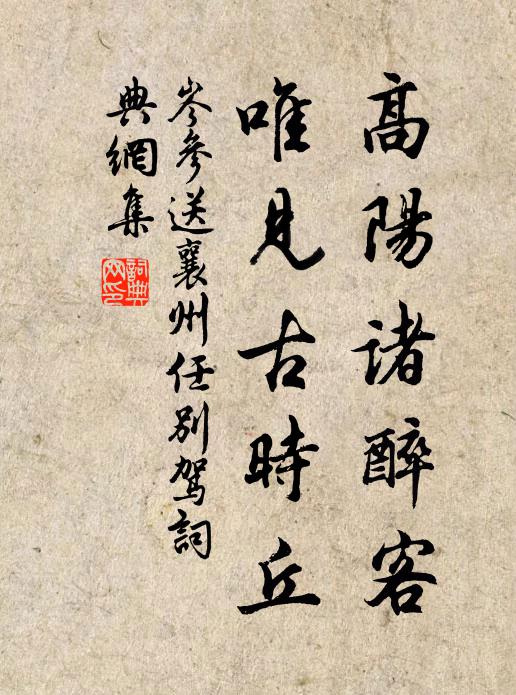 高陽諸醉客
唯見古時丘
岑參送襄州任別駕詞
典網集
詞典
网印